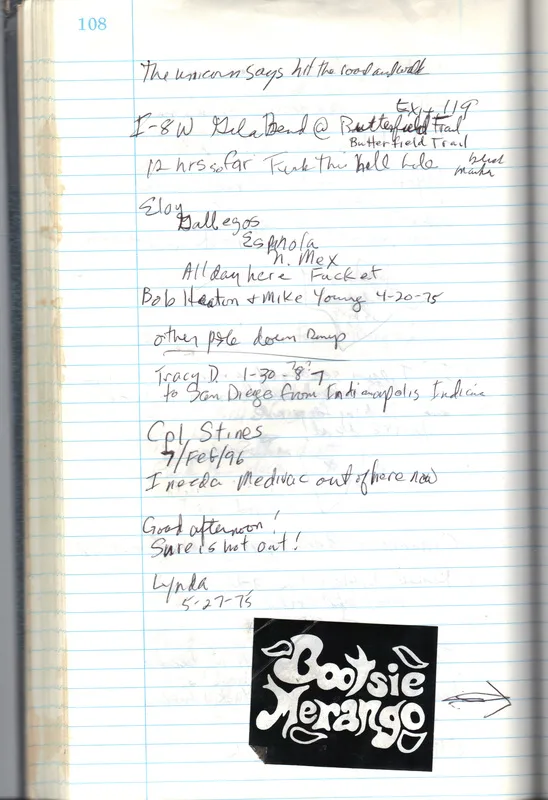 108
The unicorn says hit the road and walk
Exit 119
I-8W Gila Bend @ Butterfield Trail
Butterfield Trail
12 hrs so far Fuck this hell hole black
Eloy
Gallegos
Española
N. Mex
All day here Fuck et
Bob Heaton + Mike Young 4-20-75
other pole down Ramp
Tracy D. 1-30-87
to San Diego from Indianapolis Indiana
Cpl Stines
7/Feb/96
I need a Medivac out of here now
Good afternoon!
Sure is hot out!
Lynda
5-27-75
Bootsie
Merango